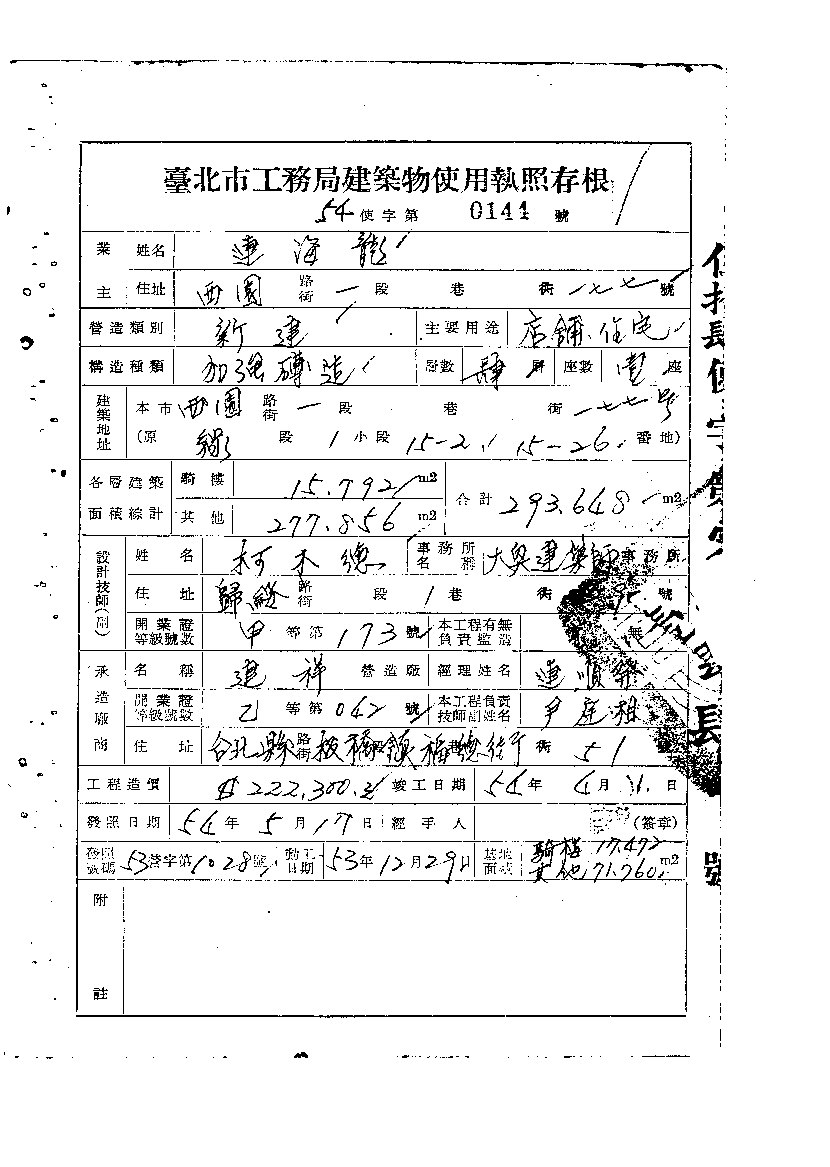 臺北市工務局建築物使用執照存根
54 使字第 0144 號
業主 姓名 連海龍
住址 西園 路街 一 段 巷 街 一七七 號
營造類別 新建 主要用途 店舖、住宅
構造種類 加強磚造 層數 肆 層 座數 壹 座
建築地址 本市 西園 路街 一 段 巷 街 一七七号
(原 段 1 小段 15-2, 15-26, 番地)
各層建築面積綜計 騎樓 15.792 m2 合計 293.648 m2
其他 277.856 m2
設計技師(副) 姓名 柯木 事務所名稱 建築師事務所
住址 歸綏 路街 段 1 巷 街 號
開業證等級號數 甲 等第 173 號 本工程有無負責監造 無
承造廠商 名稱 建祥 營造廠 經理姓名 連順
開業證等級號數 乙 等第 042 號 本工程負責技師副姓名 尹
住址 台北縣 路街 板橋鎮福德街 街 51 號
工程造價 222,300. 竣工日期 54 年 4 月 日
發照日期 54 年 5 月 17 日 經手人 (簽章)
發照號碼 53營字第1028號 動工日期 53年12月29日 基地面積 騎樓 17.472 其他 71.760 m2
附註